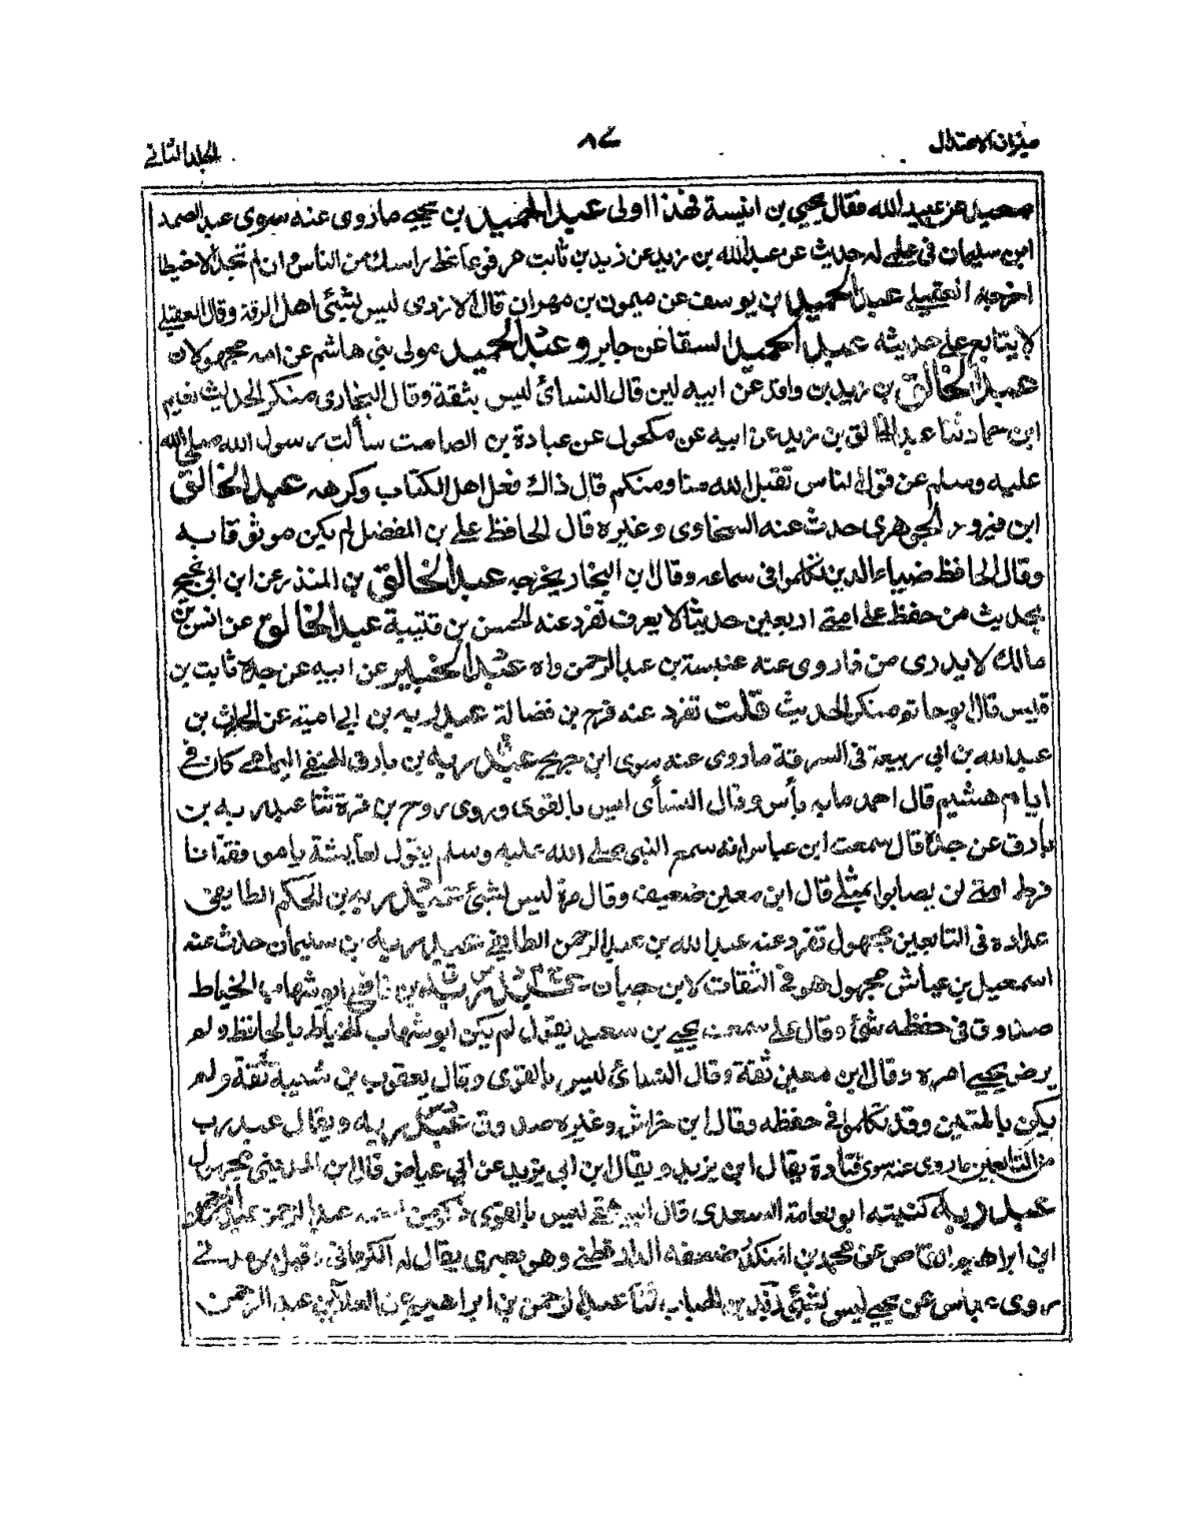 ميزان الاعتدال
٨٤
المجلد الثاني
سعيد عن عبيد الله فقال يحيى بن انيسة فهذا اولى عبد الحميد بن يحيى ما روى عنه سوى عبد الصمد
ابن سليمان في علي له حديث عن عبد الله بن زيد عن زيد بن ثابت مرفوعا غط راسك من الناس وان لم تجد الا خيطا
اخرجه العقيلي عبد الحميد بن يوسف عن ميمون بن مهران قال الازدى ليس بشئ اهل الرقة وقال العقيلي
لا يتابع على حديثه عبد الحميد السقا عن جابر و عبد الحميد مولى بني هاشم عن امه مجهولان
عبد الخالق بن زيد بن واقد عن ابيه لين قال النسائ ليس بثقة وقال البخارى منكر الحديث نعيم
ابن حماد ثنا عبد الخالق بن زيد عن ابيه عن مكحول عن عبادة بن الصامت سألت رسول الله صلى الله
عليه وسلم عن قول الناس تقبل الله منا ومنكم قال ذاك فعل اهل الكتاب وكرهه عبد الخالق
ابن فيروز الجوهرى حدث عنه السخاوى وغيره قال الحافظ علي بن المفضل لم يكن موثوقا به
وقال الحافظ ضياء الدين تكلموا في سماعه وقال ابن النجار يخرجه عبد الخالق بن المنذر عن ابن ابي نجيح
بحديث من حفظ على امتي اربعين حديثا لا يعرف تفرد عنه الحسن بن قتيبة عبد الخالق عن انس بن
مالك لا يدرى من ذا روى عنه عنبسة بن عبد الرحمن واه عبد الخبير عن ابيه عن جده ثابت بن
قيس قال ابو حاتم منكر الحديث قلت تفرد عنه فرج بن فضالة عبد ربه بن ابي امية عن الحارث بن
عبد الله بن ابي ربيعة في السرقة ما روى عنه سوى ابن جريج عبد ربه بن بارق الحنفي اليمامي كان في
ايام هشيم قال احمد ما به بأس وقال النسأى ليس بالقوى وروى روح بن قرة ثنا عبد ربه بن
بارق عن جده قال سمعت ابن عباس انه سمع النبي صلى الله عليه وسلم يقول لعايشة يا موفقة انا
فرط امتي لن يصابوا بمثلي قال ابن معين ضعيف وقال مرة ليس بشئ عبد ربه بن الحكم الطايفي
عداده في التابعين مجهول تفرد عنه عبد الله بن عبد الرحمن الطايفي عبد ربه بن سليمان حدث عنه
اسمعيل بن عياش مجهول هو في الثقات لابن حبان عبد ربه بن نافع ابو شهاب الخياط
صدوق في حفظه شئ وقال علي سمعت يحيى بن سعيد يقول لم يكن ابو شهاب الخياط بالحافظ ولم
يرض يحيى امره وقال ابن معين ثقة وقال النسائ ليس بالقوى وقال يعقوب بن شيبة ثقة ولم
يكن بالمتين وقد تكلموا في حفظه وقال ابن خراش وغيره صدوق عبد ربه ويقال عبد رب
من التابعين ما روى عنه سوى قتادة يقال ابن يزيد ويقال ابن ابي يزيد عن ابي عياض قال ابن المديني مجهول
عبد ربه كنيته ابو نعامة السعدى قال البيهقي ليس بالقوى عبد الرحمن
ابن ابراهيم القاص عن محمد بن المنكدر ضعفه الدارقطني وهو بصرى يقال له الكرماني قيل
روى عباس عن يحيى ليس بشئ زيد بن الحباب ثنا عبد الرحمن بن ابراهيم عن العلا بن عبد الرحمن